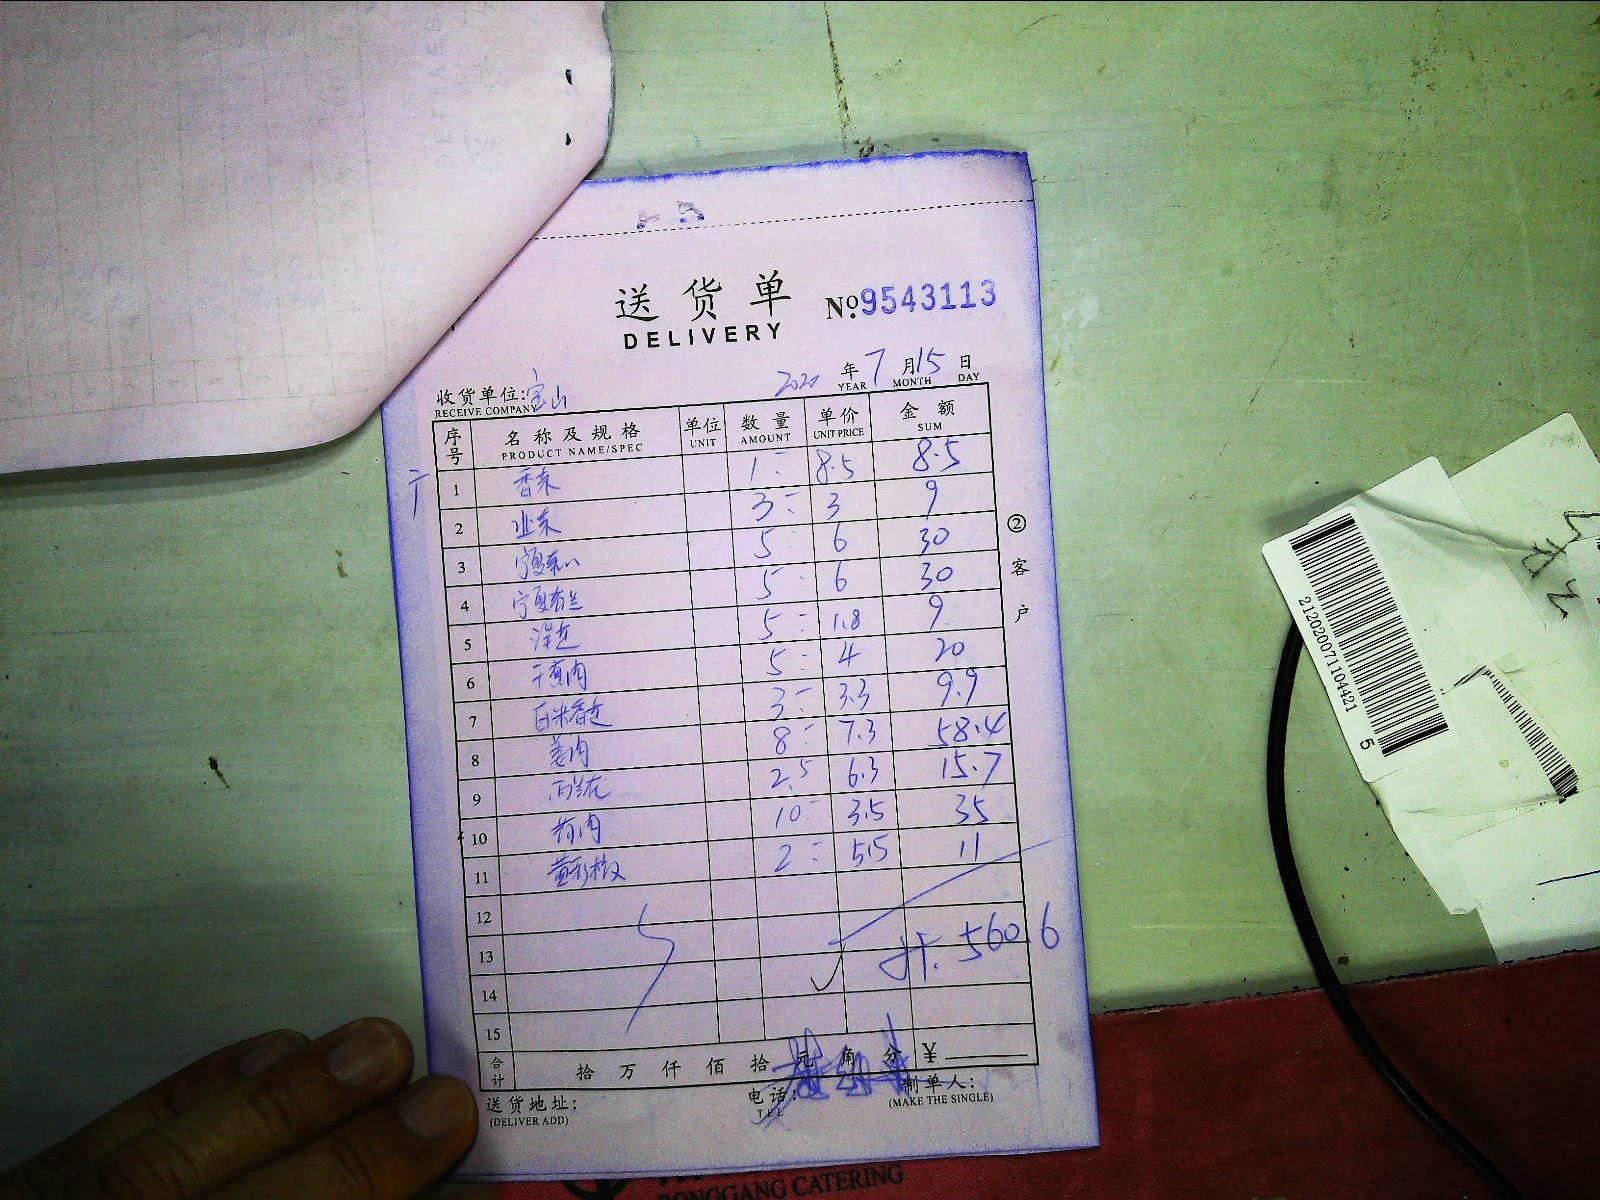 送货单
DELIVERY
No.9543113
收货单位:宝山 2020年7月15日
RECEIVE COMPANY YEAR MONTH DAY
序号 名称及规格 单位 数量 单价 金额
PRODUCT NAME/SPEC UNIT AMOUNT UNIT PRICE SUM
1 香菜 1- 8.5 8.5
2 3- 3 9
3 宁夏菜心 5- 6 30
4 5- 6 30
5 5- 1.8 9
6 5- 4 20
7 3- 3.3 9.9
8 姜肉 8- 7.3 58.4
9 西兰花 2.5 6.3 15.7
10 10- 3.5 35
11 黄彩椒 2- 5.5 11
12
13 560.6
14
15
合计 拾万仟佰拾元角分 ¥
送货地址: 电话: 制单人:
(DELIVER ADD) TEL (MAKE THE SINGLE)
②客户
2120200711044215
RONGGANG CATERING